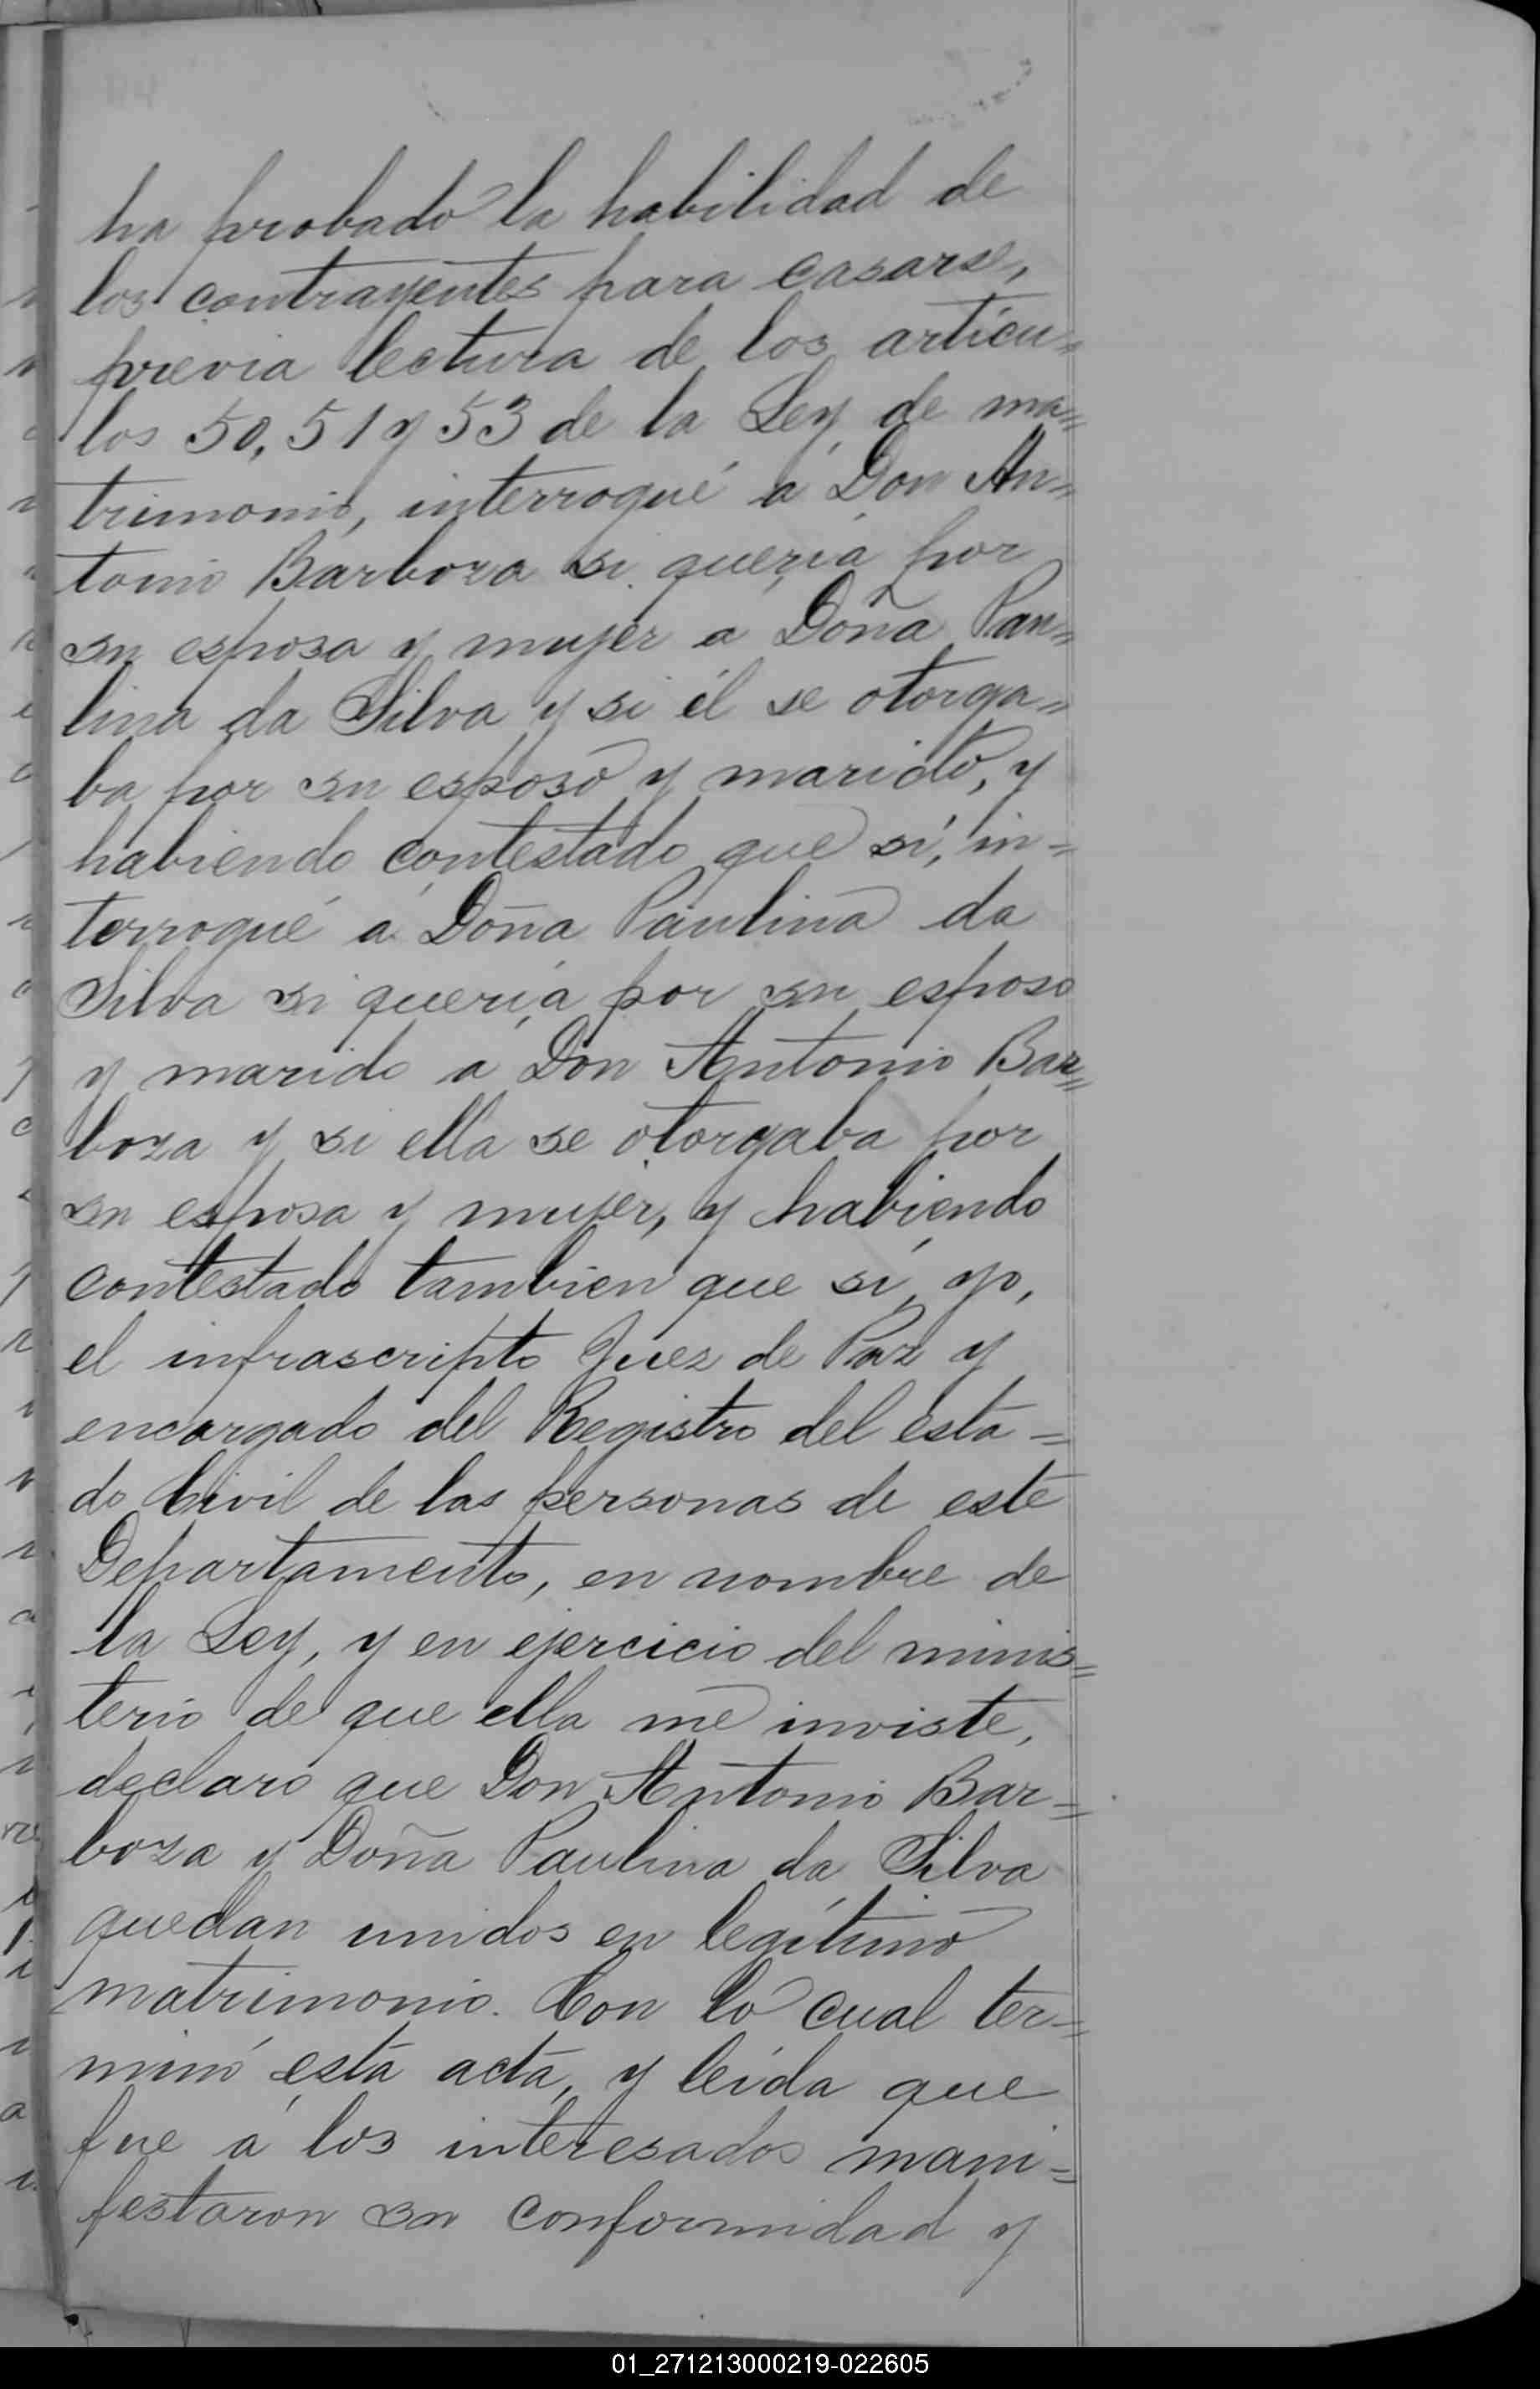 ha probado la habilidad de
los contrayentes para casarse,
previa lectura de los artícu=
los 50, 51 y 53 de la Ley de ma=
trimonio, interrogué á Don An=
tonio Barboza si quería por
su esposa y mujer a Doña Pau=
lina da Silva y si él se otorga=
ba por su esposo y marido, y
habiendo contestado que sí, in=
terrogué á Doña Paulina da
Silva si quería por su esposo
y marido a Don Antonio Bar=
boza y si ella se otorgaba por
su esposa y mujer, y habiendo
contestado tambien que sí, yo,
el infrascripto Juez de Paz y
encargado del Registro del esta=
do Civil de las personas de este
Departamento, en nombre de
la Ley, y en ejercicio del minis=
terio de que ella me inviste,
declaro que Don Antonio Bar=
boza y Doña Paulina da Silva
quedan unidos en legítimo
matrimonio. Con lo cual ter=
minó esta acta, y leída que
fue á los interesados mani=
festaron su conformidad y
01_271213000219-022605